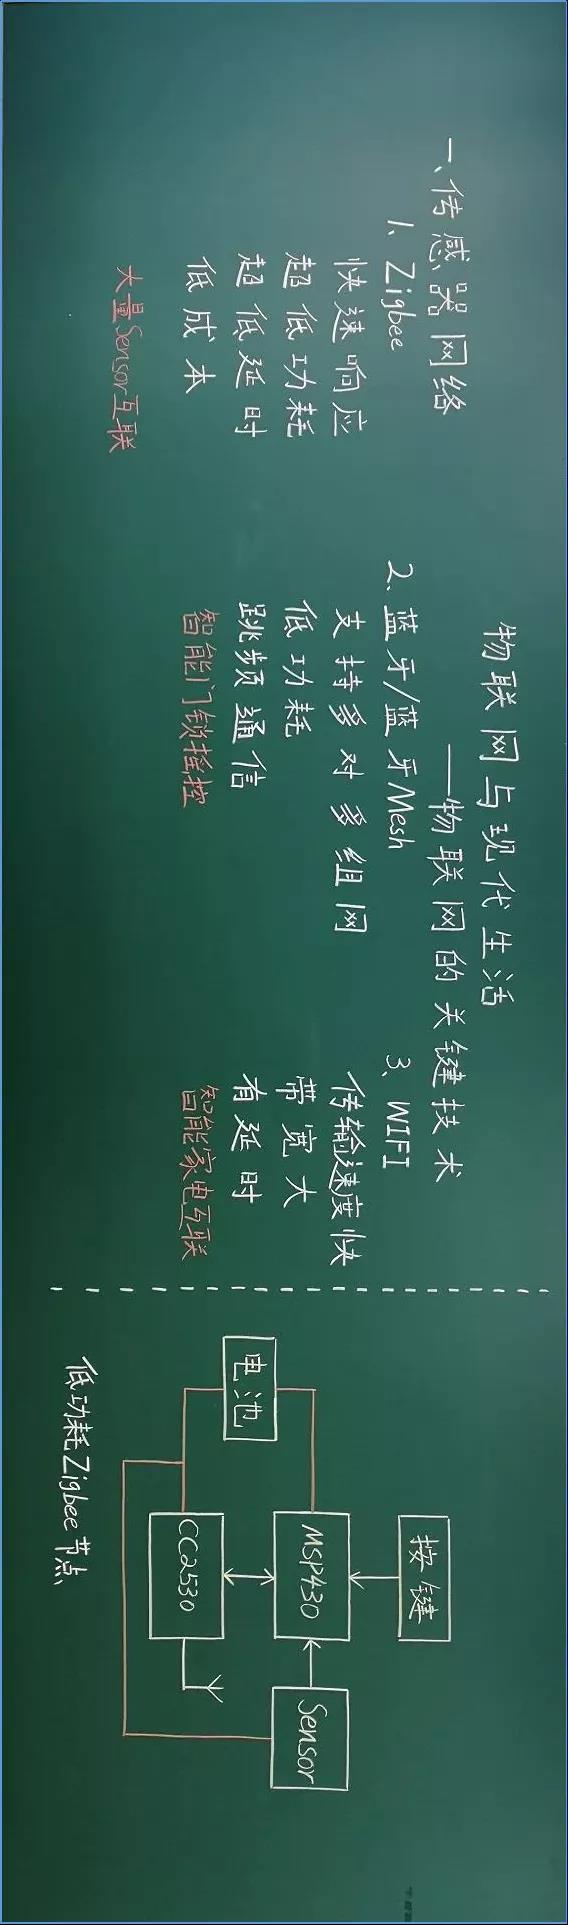 物联网与现代生活
——物联网的关键技术
一、传感器网络
1、Zigbee
快速响应
超低功耗
超低延时
低成本
大量Sensor互联
2、蓝牙/蓝牙Mesh
支持多对多组网
低功耗
跳频通信
智能门锁摇控
3、WIFI
传输速度快
带宽大
有延时
智能家电互联
按键
电池
MSP430
Sensor
CC2530
低功耗Zigbee节点